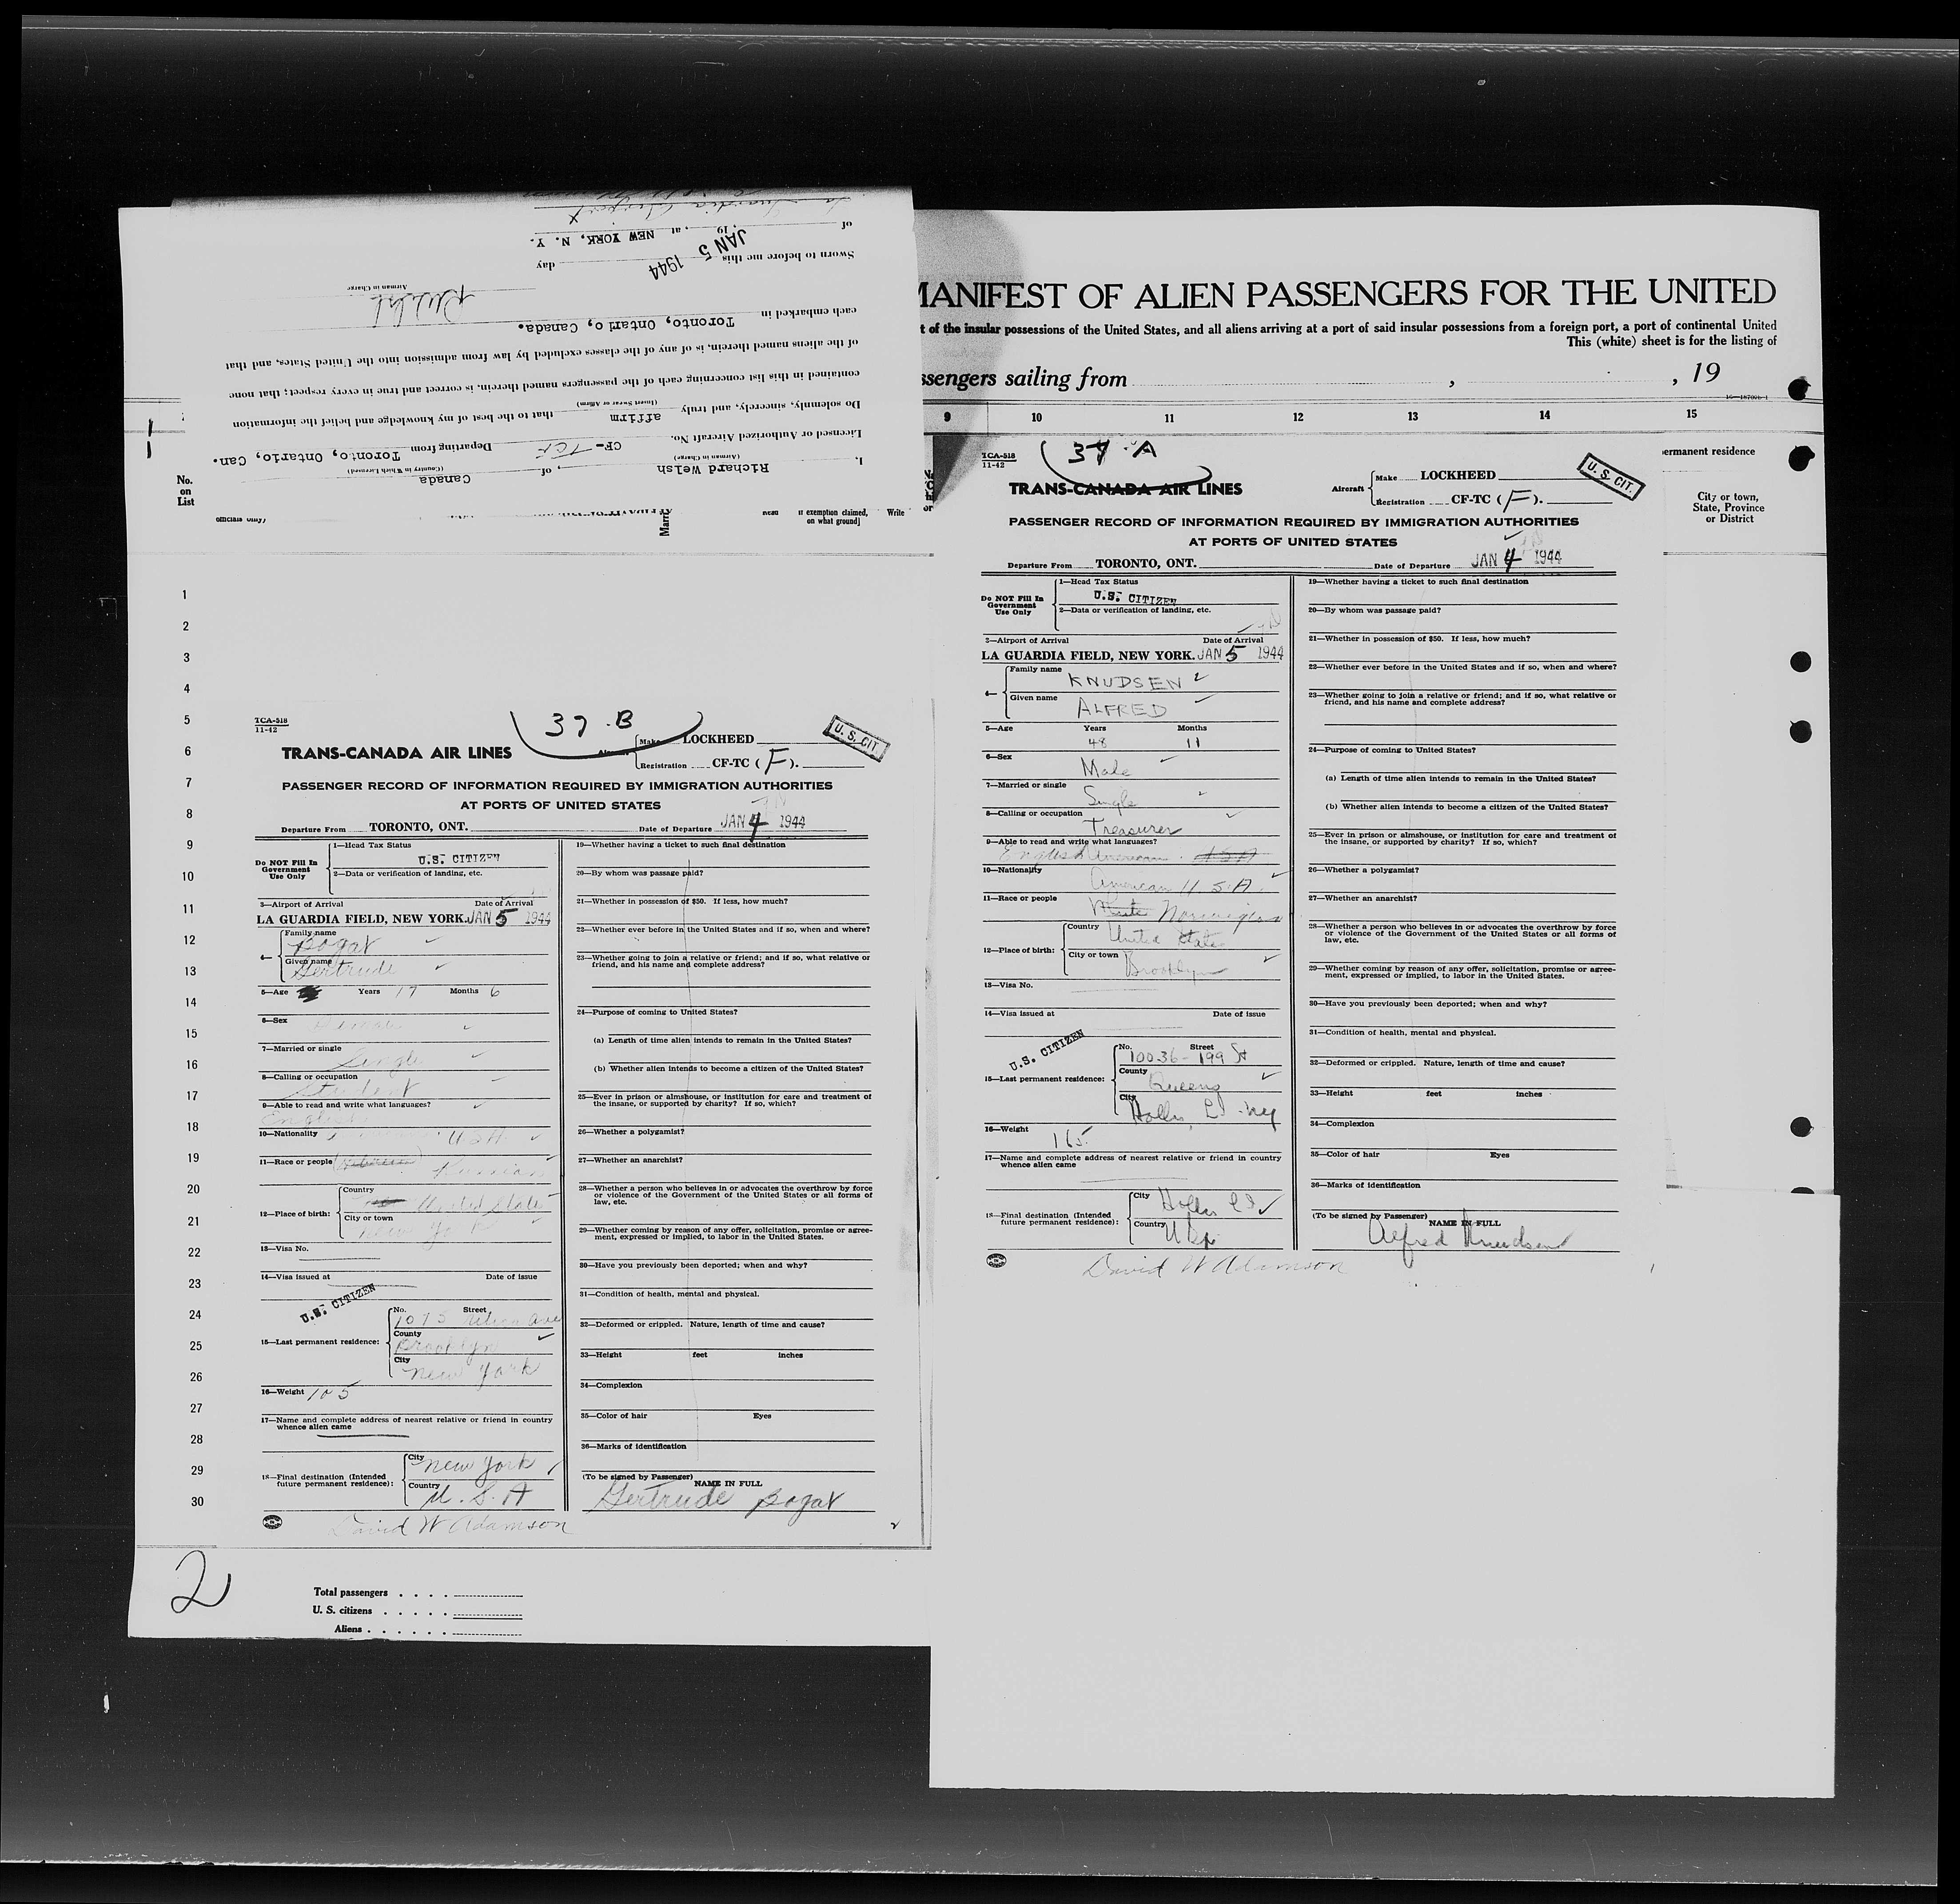 La Guardia Airport
X
of 19 , at NEW YORK, N. Y.
Sworn to before me this JAN 5 1944 day
Airman in Charge
each embarked in Toronto, Ontario, Canada.
of the aliens named therein, is of any of the classes excluded by law from admission into the United States, and that
contained in this list concerning each of the passengers named therein, is correct and true in every respect; that none
(Insert Swear or Affirm)
Do solemnly, sincerely, and truly affirm that to the best of my knowledge and belief the information
Licensed or Authorized Aircraft No. CF-TCF Departing from Toronto, Ontario, Can.
(Airman in Charge) (Country in Which Licensed)
I, Richard Welsh , of Canada
No.
on
List
officials only)
Marri
head
if exemption claimed,
on what ground]
Write
1
2
3
4
5
6
7
8
9
10
11
12
13
14
15
16
17
18
19
20
21
22
23
24
25
26
27
28
29
30
TCA-518
11-42
37-B
U. S. CIT.
TRANS-CANADA AIR LINES
Aircraft Make LOCKHEED
Registration CF-TC (F).
PASSENGER RECORD OF INFORMATION REQUIRED BY IMMIGRATION AUTHORITIES
AT PORTS OF UNITED STATES
Departure From TORONTO, ONT. Date of Departure JAN 4 1944
Do NOT Fill In
Government
Use Only
1—Head Tax Status
U.S. CITIZEN
2—Data or verification of landing, etc.
3—Airport of Arrival Date of Arrival
LA GUARDIA FIELD, NEW YORK. JAN 5 1944
4— Family name
Bogat
Given name
Gertrude
5—Age Years 17 Months 6
6—Sex Female
7—Married or single
Single
8—Calling or occupation
Student
9—Able to read and write what languages?
English
10—Nationality U S A
11—Race or people Hebrew Russian
12—Place of birth: Country
United States
City or town
New York
13—Visa No.
14—Visa issued at Date of issue
U.S. CITIZEN
15—Last permanent residence: No. Street
1075 Ave
County
Brooklyn
City
New York
16—Weight 105
17—Name and complete address of nearest relative or friend in country
whence alien came
18—Final destination (Intended
future permanent residence): City
New York
Country
U. S. A
David W Adamson
19—Whether having a ticket to such final destination
20—By whom was passage paid?
21—Whether in possession of $50. If less, how much?
22—Whether ever before in the United States and if so, when and where?
23—Whether going to join a relative or friend; and if so, what relative or
friend, and his name and complete address?
24—Purpose of coming to United States?
(a) Length of time alien intends to remain in the United States?
(b) Whether alien intends to become a citizen of the United States?
25—Ever in prison or almshouse, or institution for care and treatment of
the insane, or supported by charity? If so, which?
26—Whether a polygamist?
27—Whether an anarchist?
28—Whether a person who believes in or advocates the overthrow by force
or violence of the Government of the United States or all forms of
law, etc.
29—Whether coming by reason of any offer, solicitation, promise or agree-
ment, expressed or implied, to labor in the United States.
30—Have you previously been deported; when and why?
31—Condition of health, mental and physical.
32—Deformed or crippled. Nature, length of time and cause?
33—Height feet inches
34—Complexion
35—Color of hair Eyes
36—Marks of identification
(To be signed by Passenger)
NAME IN FULL
Gertrude Bogat
2
Total passengers
U. S. citizens
Aliens
MANIFEST OF ALIEN PASSENGERS FOR THE UNITED
t of the insular possessions of the United States, and all aliens arriving at a port of said insular possessions from a foreign port, a port of continental United
This (white) sheet is for the listing of
ssengers sailing from , , 19
9 10 11 12 13 14 15
ermanent residence
City or town,
State, Province
or District
TCA-518
11-42
37-A
U. S. CIT.
TRANS-CANADA AIR LINES
Aircraft Make LOCKHEED
Registration CF-TC (F).
PASSENGER RECORD OF INFORMATION REQUIRED BY IMMIGRATION AUTHORITIES
AT PORTS OF UNITED STATES
Departure From TORONTO, ONT. Date of Departure JAN 4 1944
Do NOT Fill In
Government
Use Only
1—Head Tax Status
U.S. CITIZEN
2—Data or verification of landing, etc.
3—Airport of Arrival Date of Arrival
LA GUARDIA FIELD, NEW YORK. JAN 5 1944
4— Family name
KNUDSEN
Given name
ALFRED
5—Age Years Months
48 11
6—Sex
Male
7—Married or single
Single
8—Calling or occupation
Treasurer
9—Able to read and write what languages?
English American USA
10—Nationality
American U S A.
11—Race or people
White Norwegian
12—Place of birth: Country
United States
City or town
Brooklyn
13—Visa No.
14—Visa issued at Date of issue
U.S. CITIZEN
15—Last permanent residence: No. Street
100.36 - 199 St
County
Queens
City
Hollis, L I - NY
16—Weight
165
17—Name and complete address of nearest relative or friend in country
whence alien came
18—Final destination (Intended
future permanent residence): City
Hollis L I
Country
USA
David W Adamson
19—Whether having a ticket to such final destination
20—By whom was passage paid?
21—Whether in possession of $50. If less, how much?
22—Whether ever before in the United States and if so, when and where?
23—Whether going to join a relative or friend; and if so, what relative or
friend, and his name and complete address?
24—Purpose of coming to United States?
(a) Length of time alien intends to remain in the United States?
(b) Whether alien intends to become a citizen of the United States?
25—Ever in prison or almshouse, or institution for care and treatment of
the insane, or supported by charity? If so, which?
26—Whether a polygamist?
27—Whether an anarchist?
28—Whether a person who believes in or advocates the overthrow by force
or violence of the Government of the United States or all forms of
law, etc.
29—Whether coming by reason of any offer, solicitation, promise or agree-
ment, expressed or implied, to labor in the United States.
30—Have you previously been deported; when and why?
31—Condition of health, mental and physical.
32—Deformed or crippled. Nature, length of time and cause?
33—Height feet inches
34—Complexion
35—Color of hair Eyes
36—Marks of identification
(To be signed by Passenger)
NAME IN FULL
Alfred Knudsen